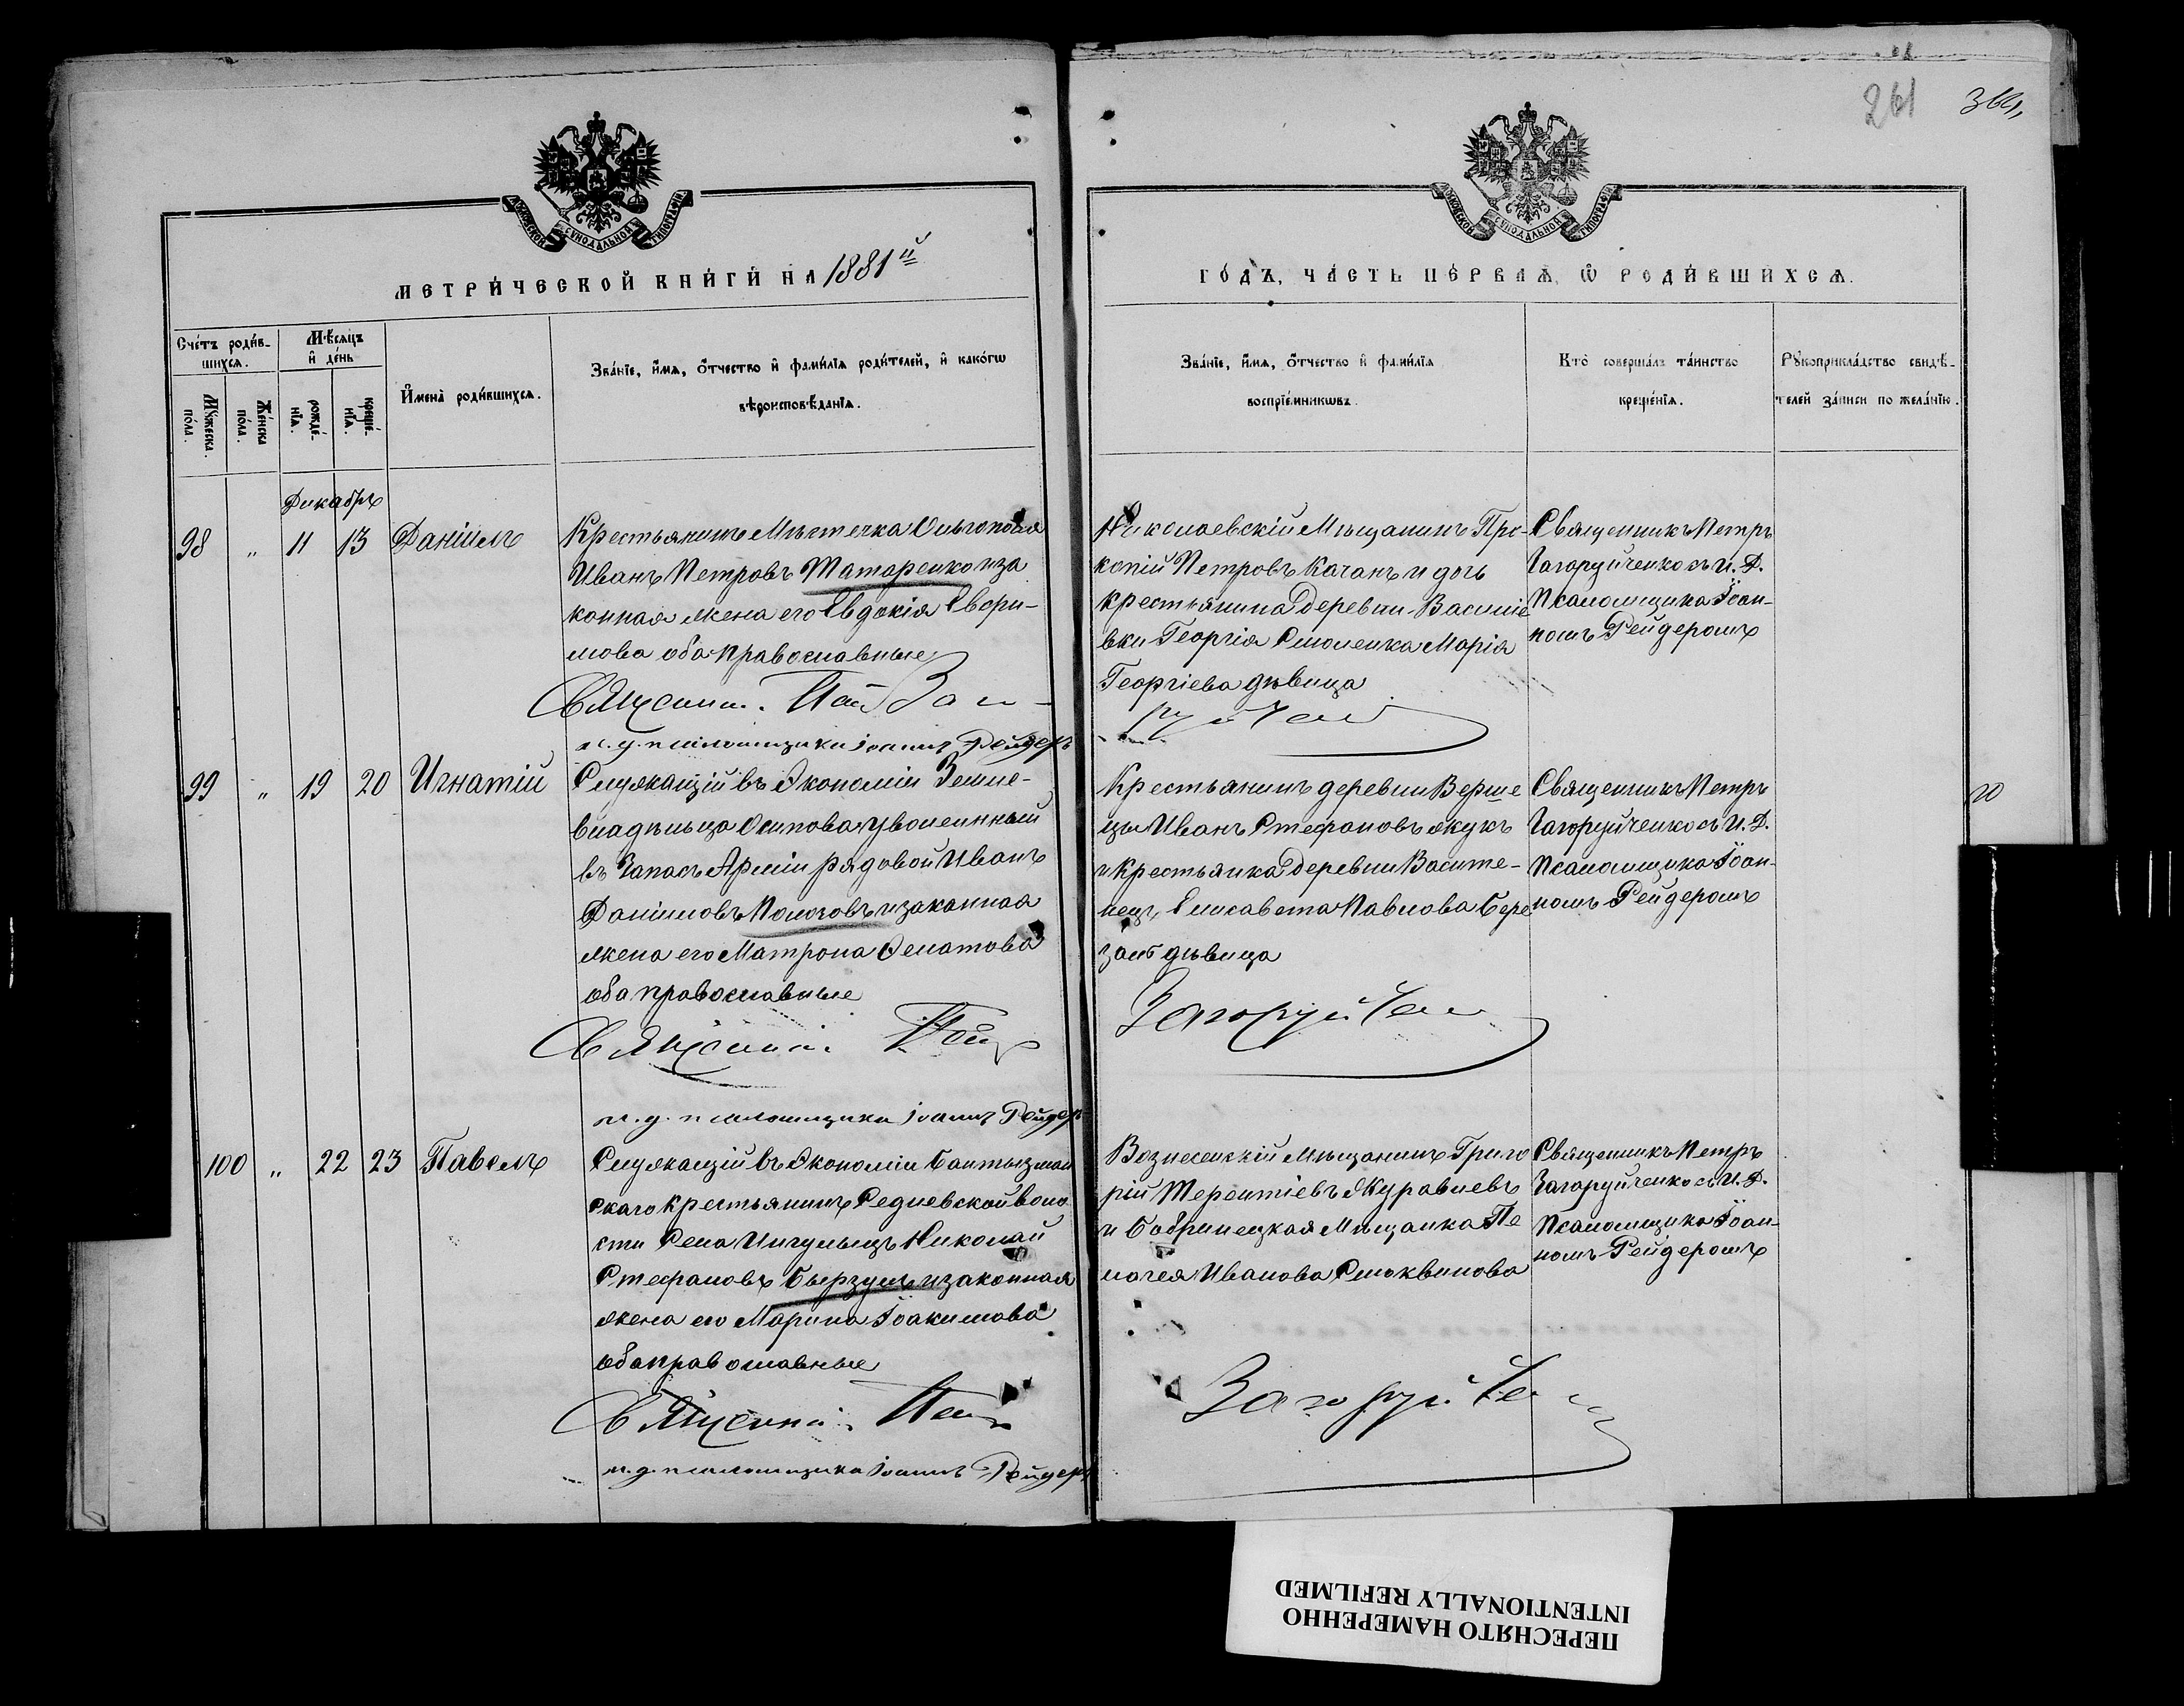 261
364,
МОСКОВСКОЙ СѴНОДАЛЬНОЙ ТИПОГРАФІИ
МОСКОВСКОЙ СѴНОДАЛЬНОЙ ТИПОГРАФІИ
МЕТРИ́ЧЕСКОЙ КНИ́ГИ НА 1881й
ГО́ДЪ, ЧА́СТЬ ПЕ́РВАѦ, Ѽ РОДИ́ВШИХСѦ.
Сче́тъ роди́в-
шихсѧ.
Мꙋ́жеска по́ла.
Же́нска по́ла.
Мѣ́сѧцъ
и҆ де́нь
рожде́-
нїѧ.
креще́-
нїѧ.
И҆мена̀ роди́вшихсѧ.
Зва́нїе, и҆́мѧ, ѻ҆́тчество и҆ фами́лїѧ роди́телей, и҆ како́гѡ
вѣроисповѣ́данїѧ.
Зва́нїе, и҆́мѧ, ѻ҆́тчество и҆ фами́лїѧ
воспрїе́мникѡвъ.
Кто̀ соверша́лъ та́инство
креще́нїѧ.
Рꙋкоприкла́дство свидѣ́-
телей за́писи по жела́нїю.
Декабрь
98 „ 11 13 Даніилъ
Крестьянинъ Мѣстечка Ольгополя
Иванъ Петровъ Татаренко и за
конная жена его Евдокія Евфи-
мова оба православные
Священн. Петръ За
и. д. псаломщика Іоаннъ Рейдеръ
Николаевскій Мѣщанинъ Про-
копій Петровъ Качанъ и дочь
крестьянина деревни Василіе
вки Георгія Смоленка Марія
Георгіева дѣвица
гуйчен
Священникъ Петръ
Загоруйченко съ И. Д.
Псаломщика Іоан-
номъ Рейдеромъ
99 „ 19 20 Игнатій
Служащій въ Экономіи Земле-
владѣльца Осипова уволенный
въ Запасъ Арміи рядовой Иванъ
Даниловъ Пологовъ и законная
жена его Матрона
оба православные
Священни. Петр
и. д. псаломщика Іоаннъ Рейдеръ
Крестьянинъ деревни Верше
цы Иванъ Стефановъ Жукъ
и крестьянка деревни
Елисавета Павлова Бере
дѣвица
Загоруйчен
Священникъ Петръ
Загоруйченко съ И. Д.
Псаломщика Іоан-
номъ Рейдеромъ
20
100 „ 22 23 Павелъ
Служащій въ Экономіи Бантышман
скаго крестьянинъ Седневской воло
сти Села Ингулецъ Николай
Стефановъ Бырзулъ и законная
жена его Марина Іоакимова
оба православные
Священни. Петр
и. д. псаломщика Іоаннъ Рейдеръ
Вознесенскій Мѣщанинъ Григо
рій Терентіевъ Журавлевъ
и Бобринецкая Мѣщанка Пе
лагея Иванова
Загоруйчен
Священникъ Петръ
Загоруйченко съ И. Д.
Псаломщика Іоан-
номъ Рейдеромъ
ПЕРЕСНЯТО НАМЕРЕННО
INTENTIONALLY REFILMED